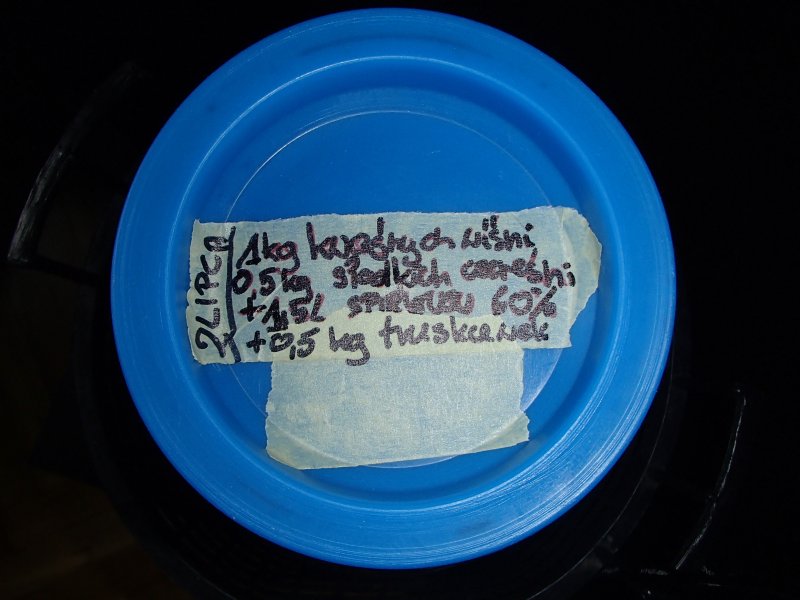 2 LIPCA
1kg kwaśnych wiśni
0,5kg słodkich czereśni
+ 1,5L spirytusu 60%
+0,5 kg truskawek